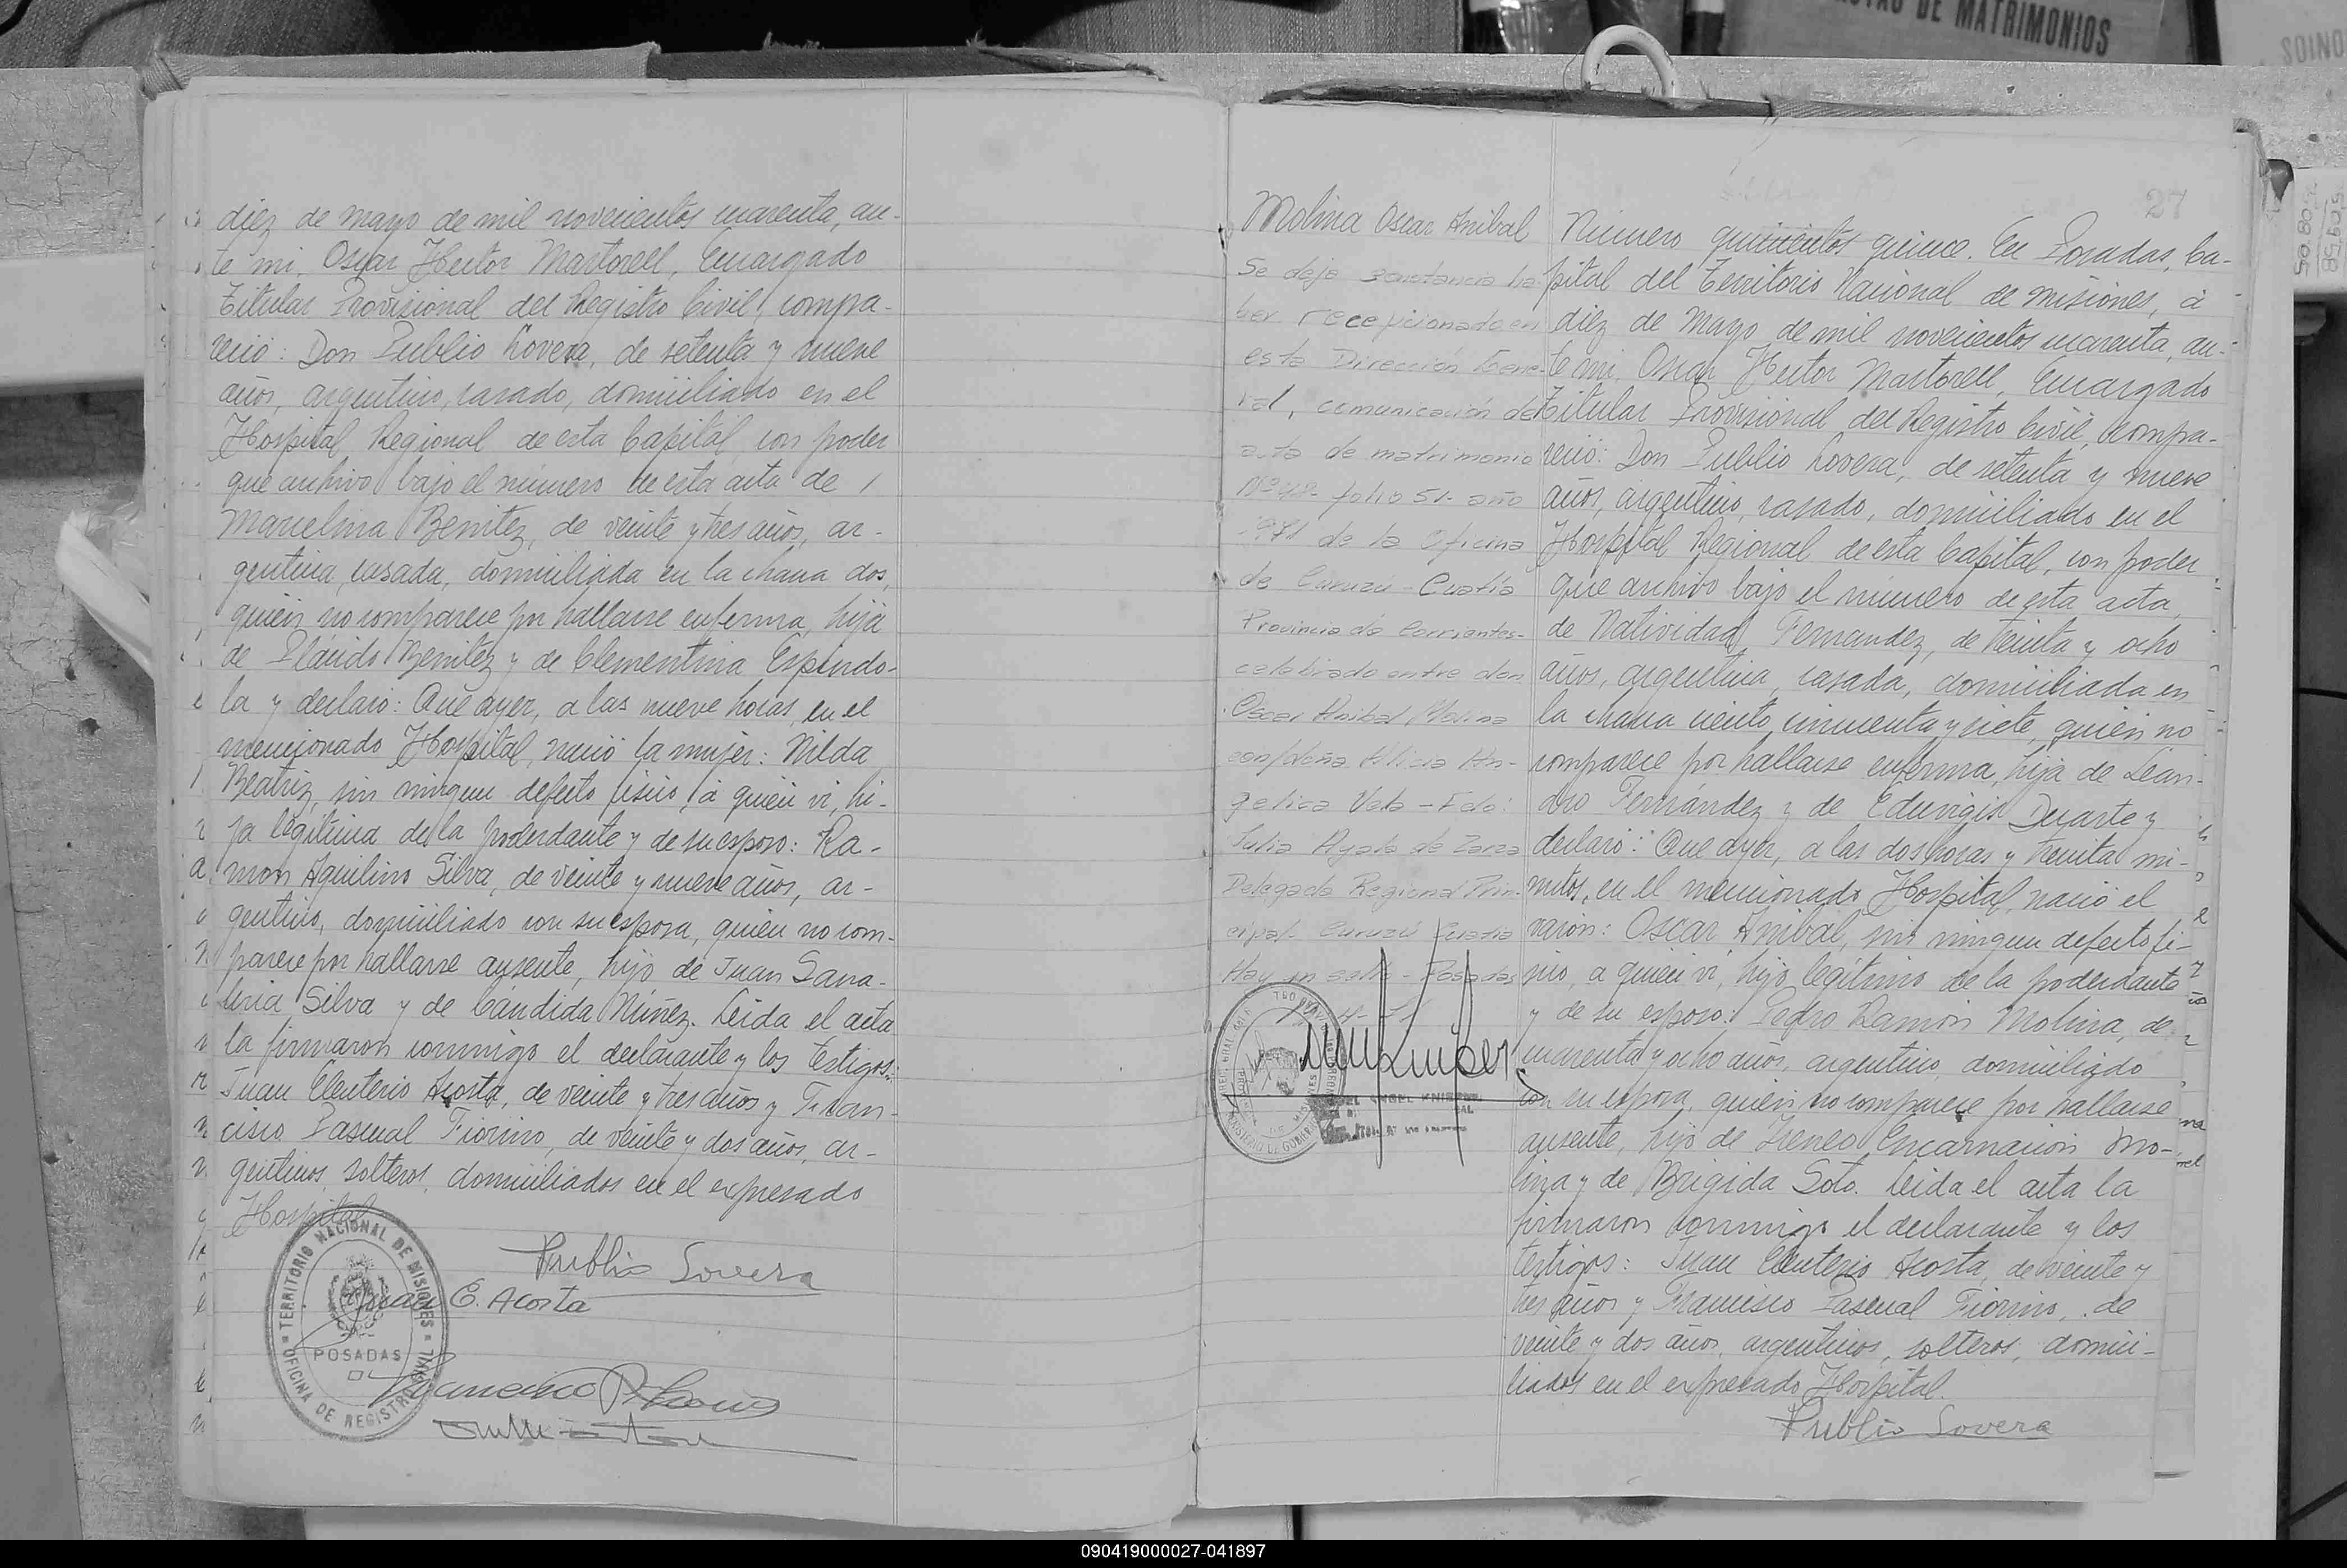 STAS DE MATRIMONIOS
diez de mayo de mil novecientos cuarenta, an-
te mi, Oscar Hector Martorell, Encargado
Titular Provisional del Registro Civil, compa-
reció: Don Publio Lovera, de setenta y nueve
años, argentino, casado, domiciliado en el
Hospital Regional de esta Capital, con poder
que archivo bajo el número de esta acta de
Marcelina Benitez, de veinte y tres años, ar-
gentina, casada, domiciliada en la chacra dos,
quién no comparece por hallarse enferma, hija
de Plácido Benitez y de Clementina Espindo-
la y declaró: Que ayer, a las nueve horas, en el
mencionado Hospital, nació la mujer: Nilda
Beatriz, sin ningun defecto físico, a quién vi, hi-
ja legítima de la poderdante y de su esposo: Ra-
mon Aquilino Silva, de veinte y nueve años, ar-
gentino, domiciliado con su esposa, quién no com-
parece por hallarse ausente, hijo de Juan
Silva y de Cándida Núñez. Leida el acta
la firmaron conmigo el declarante y los testigos:
Juan Eleuterio Acosta, de veinte y tres años y Fran-
cisco Pascual Fiorino, de veinte y dos años, ar-
gentinos, solteros, domiciliados en el expresado
Hospital
Publio Lovera
Juan E. Acosta
Francisco P.
TERRITORIO NACIONAL DE MISIONES
POSADAS
OFICINA DE REGISTRO CIVIL
27
Molina Oscar Anibal
Se deja constancia ha-
ber recepcionado en
esta Dirección Gene-
ral, comunicación del
acta de matrimonio
folio 51 año
1971 de la Oficina
de Curuzú-Cuatiá
Provincia de Corrientes-
celebrado entre don
Oscar Anibal Molina
con doña Alicia An-
gelica
Julia Ayala de
Delegada Regional Prin-
cipal Curuzú Cuatia
Hay un sello - Posadas
Número quinientos quince. En Posadas, Ca-
pital del Territorio Nacional de Misiones, á
diez de Mayo de mil novecientos cuarenta, an-
te mi, Oscar Hector Martorell, Encargado
Titular Provisional del Registro Civil, compa-
reció: Don Publio Lovera, de setenta y nueve
años, argentino, casado, domiciliado en el
Hospital Regional de esta Capital, con poder
que archivo bajo el número de esta acta,
de Natividad Fernandez, de treinta y ocho
años, argentina, casada, domiciliada en
la chacra ciento cincuenta y siete, quién no
comparece por hallarse enferma, hija de Lean-
dro Fernández y de Eduvigis Duarte y
declaró: Que ayer, a las dos horas y treinta mi-
nutos, en el mencionado Hospital, nació el
varón: Oscar Anibal, sin ningun defecto fí-
sico, a quién vi, hijo legítimo de la poderdante
y de su esposo: Pedro Ramón Molina, de
cuarenta y ocho años, argentino, domiciliado
con su esposa, quién no comparece por hallarse
ausente, hijo de Ireneo Encarnación Mo-
lina y de Brigida Soto. Leida el acta la
firmaron conmigo el declarante y los
testigos: Juan Eleuterio Acosta, de veinte y
tres años y Francisco Pascual Fiorino, de
veinte y dos años, argentinos, solteros, domici-
liados en el expresado Hospital.
Publio Lovera
090419000027-041897